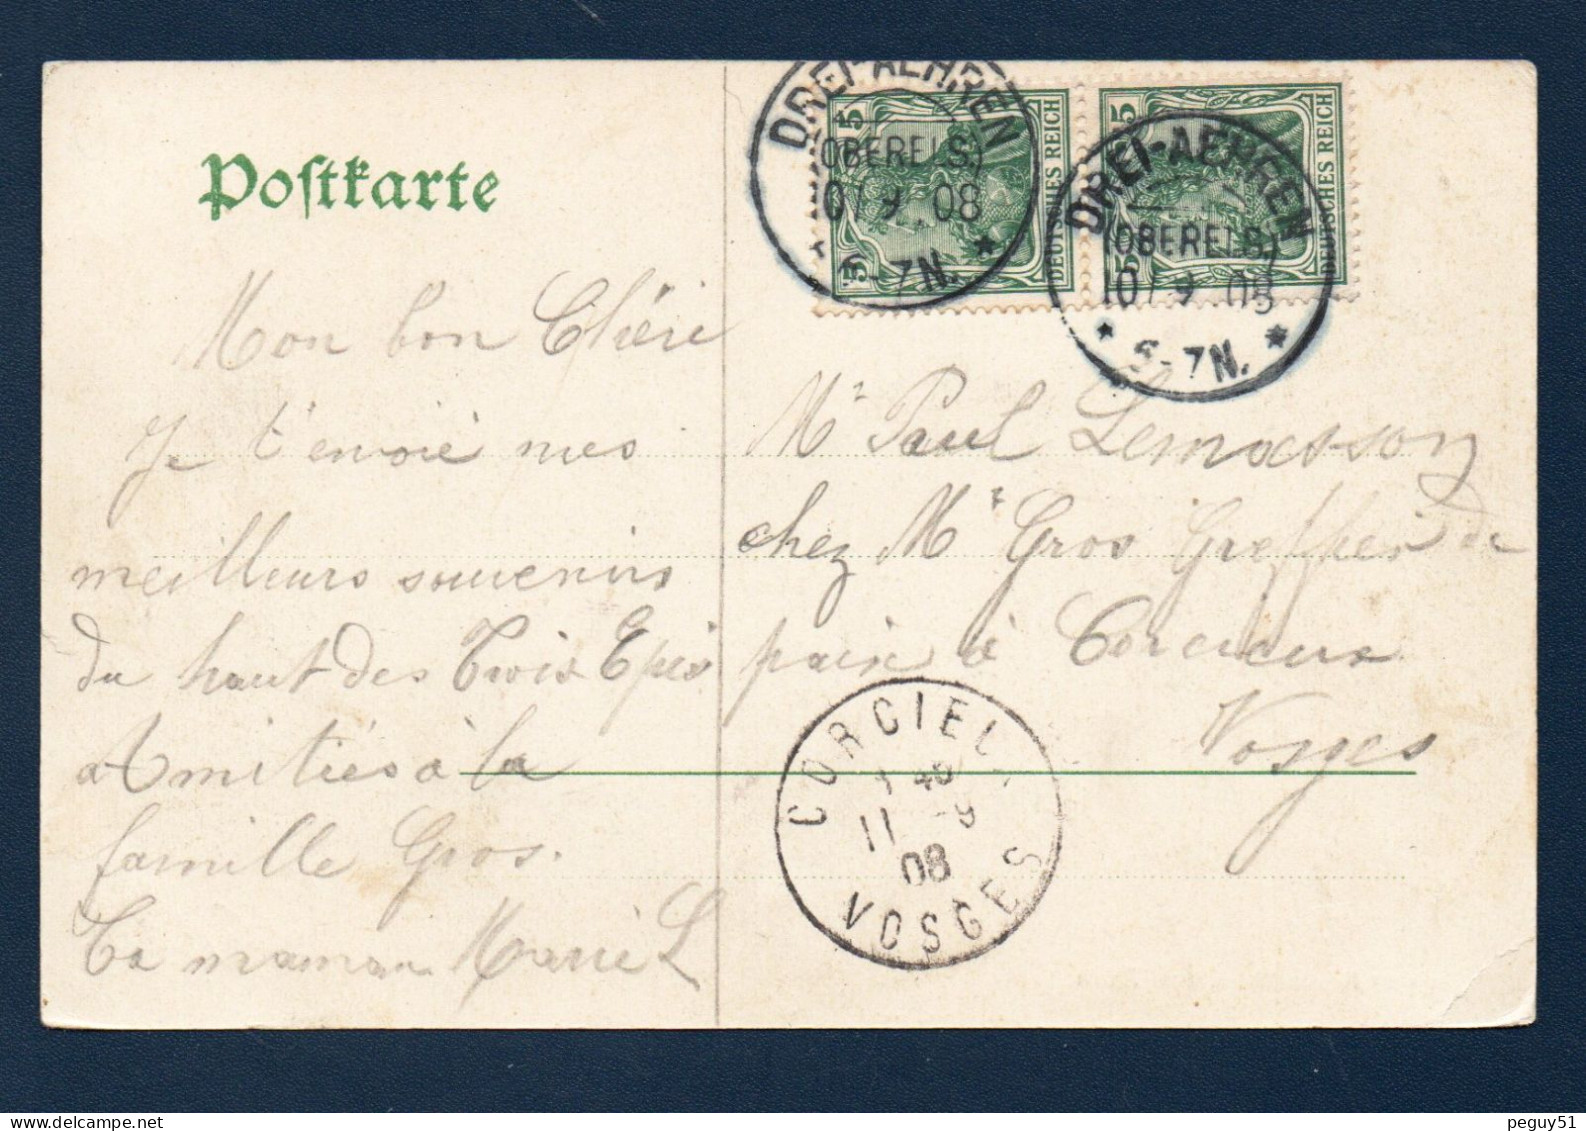 Postkarte
DREI-AEHREN
(OBERELS.)
10/9 08
* 6-7N. *
5
5
DEUTSCHES REICH
DREI-AEHREN
(OBERELS.)
10/9 08
* 6-7N. *
5
5
DEUTSCHES REICH
Mon bon Chéri
Je t'envoie mes
meilleurs souvenirs
du haut des Trois Epis
Amitiés à la
famille Gros.
Ta maman Marie L
Mr Paul Lemasson
chez Mr Gros Greffier de
paix à Corcieux
Vosges
CORCIEUX
45
11 -9
08
VOSGES
peguy51